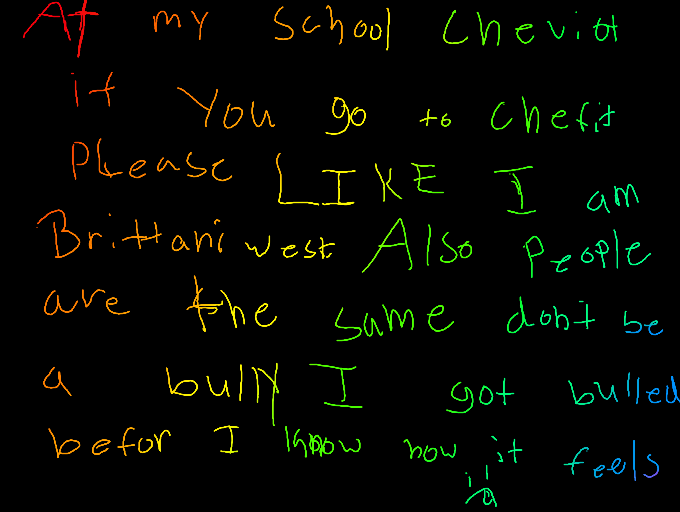 At my school Cheviot
if you go to Chefit
Please LIKE I am
Brittani west Also People
are the same dont be
a bully I got bulled
befor I know how it feels